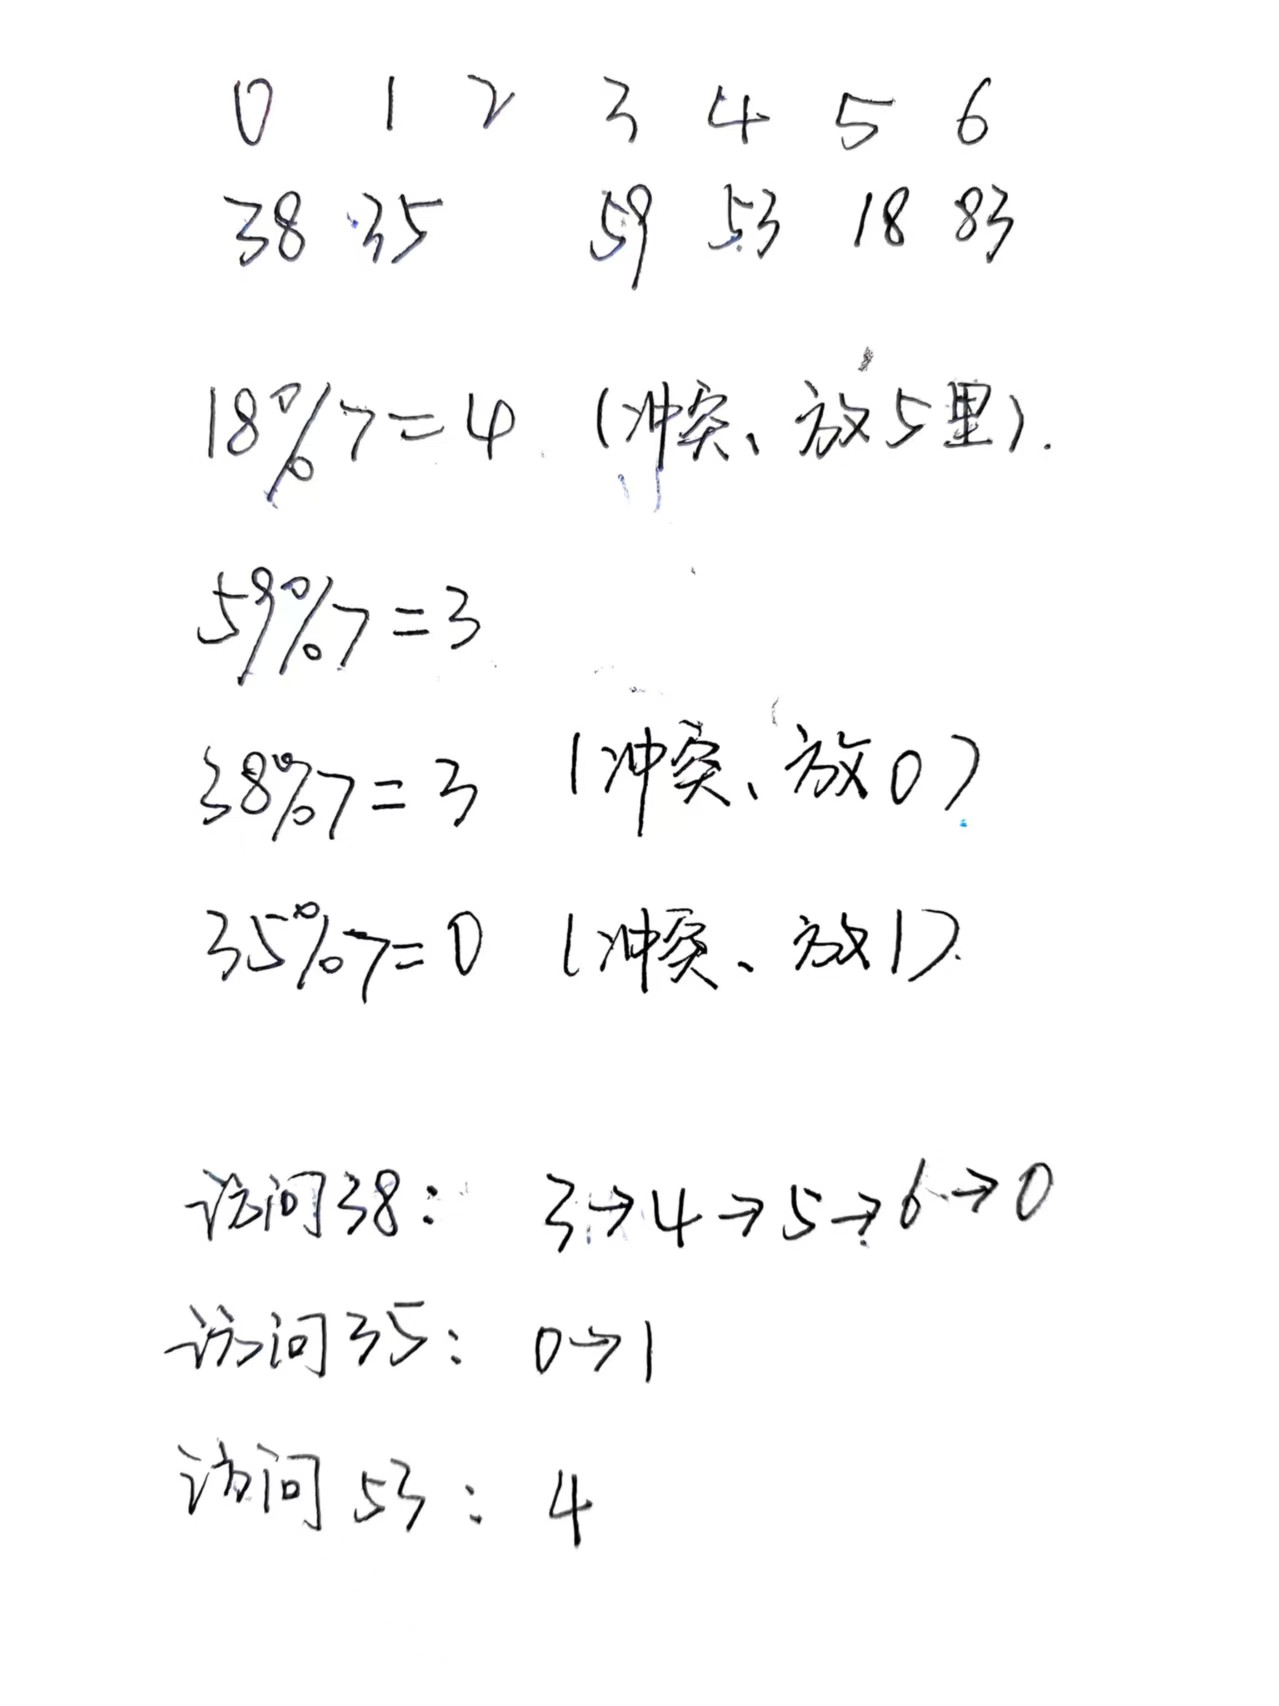 0 1 2 3 4 5 6
38 35 59 53 18 83
18%7=4 (冲突、放5里).
59%7=3
38%7=3 (冲突、放0)
35%7=0 (冲突、放1).
访问38: 3→4→5→6→0
访问35: 0→1
访问53: 4